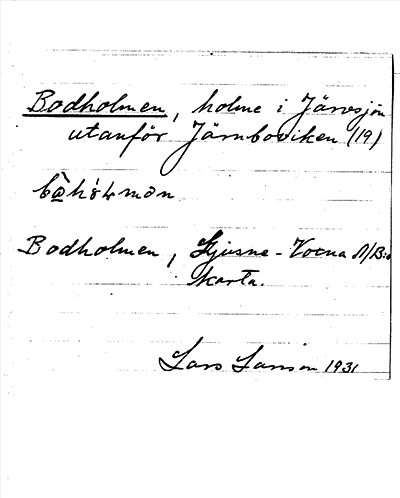 Bodholmen, holme i Järvsjön
utanför Järnboviken (19)
Bodholmen, Ljusne-Voxna A/B:s
karta.
Lars Larson 1931